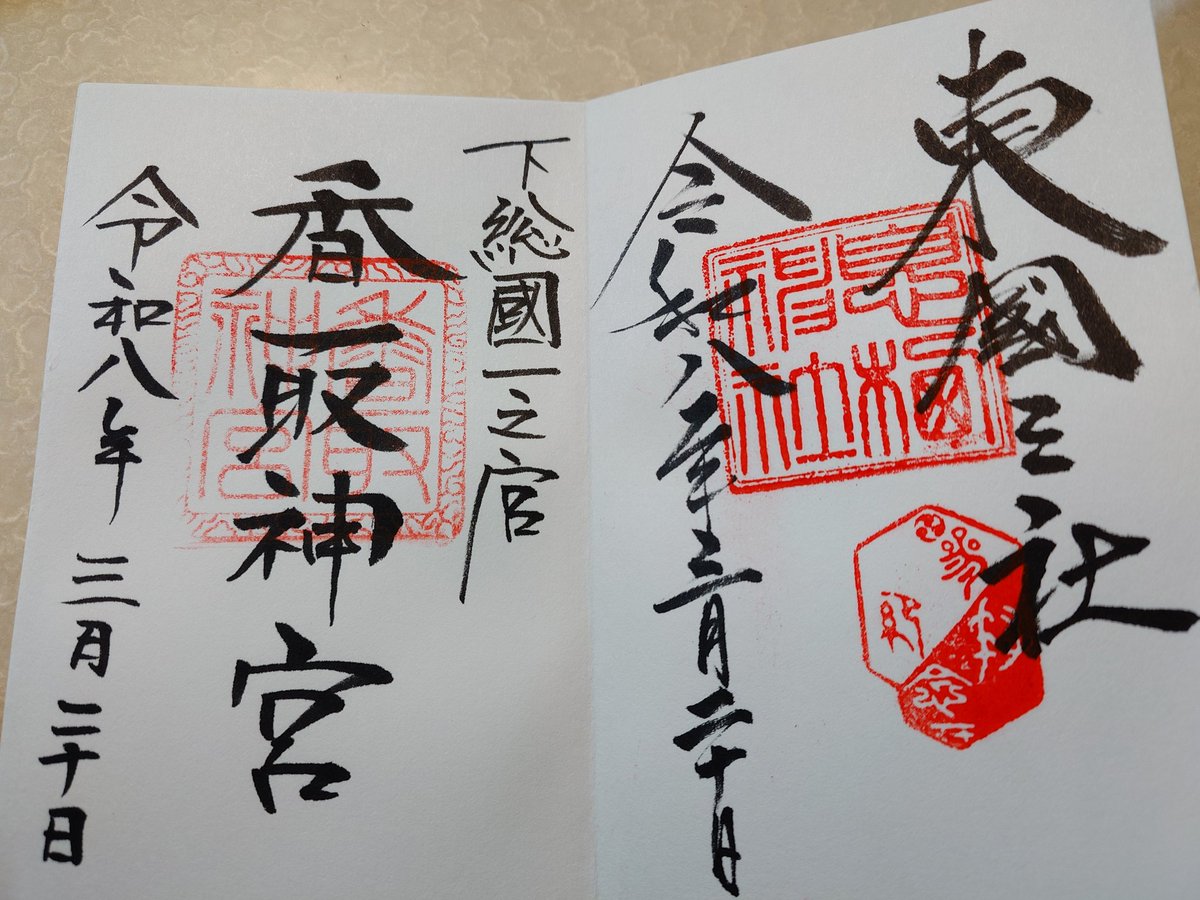 東國三社
息栖神社
令和八年三月二十日
下総國一之宮
香取神宮
香取神宮
令和八年三月二十日